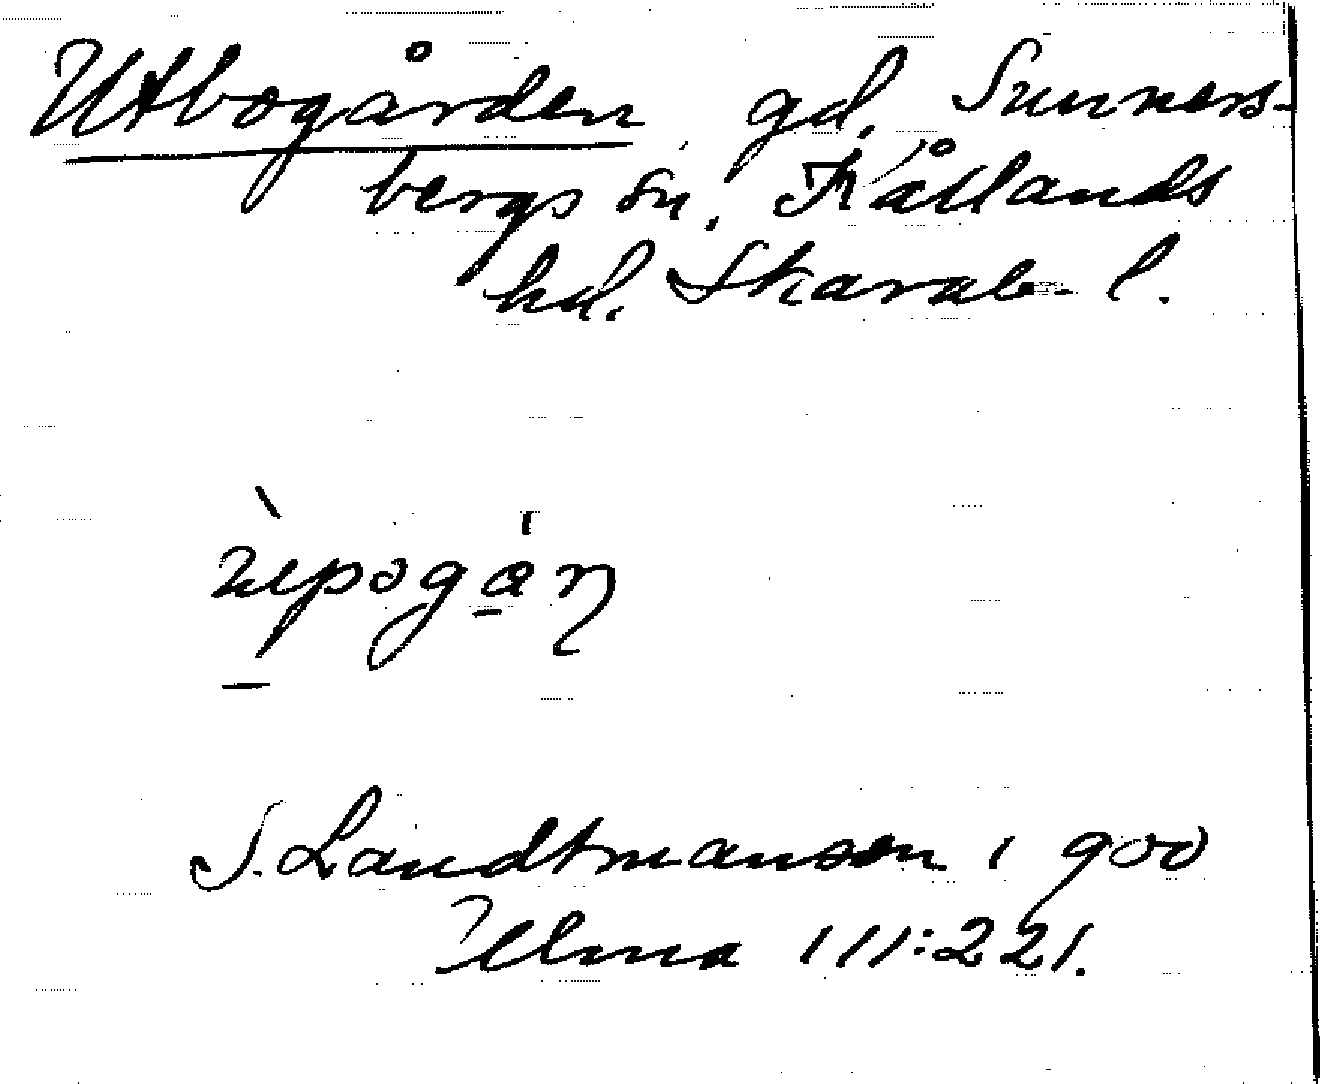 Utbogården, gd, Sunners-
bergs sn, Kållands
hd. Skarab. l.
S. Landtmanson 1900
Ulma 111:221.